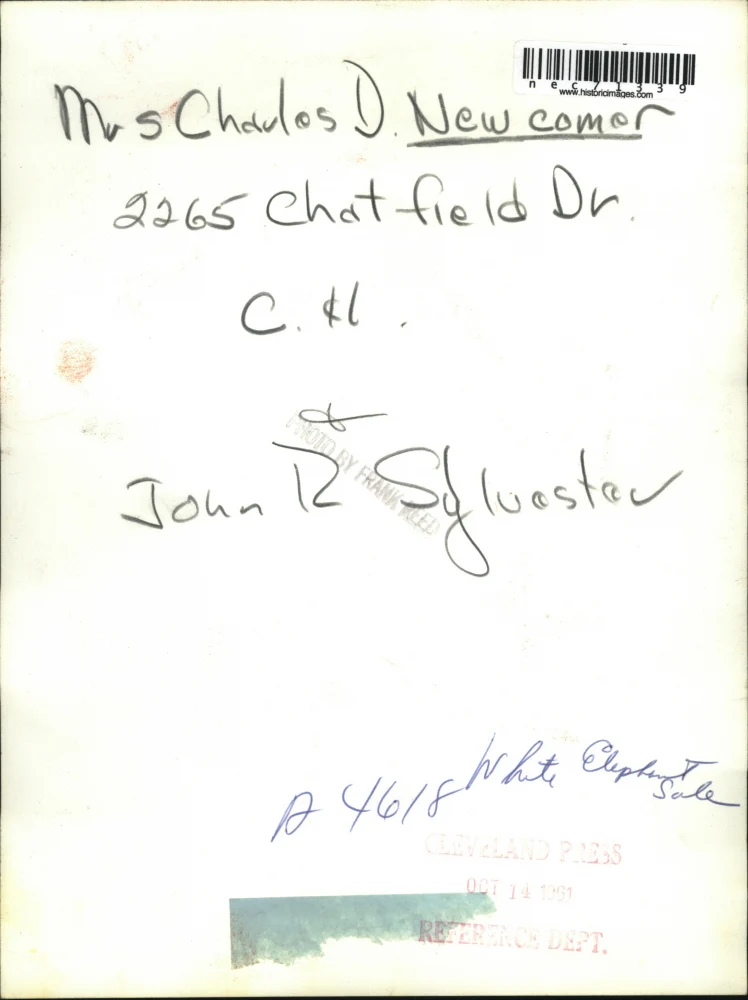 nec71339
www.historicimages.com
Mrs Charles D. Newcomer
2265 Chatfield Dr.
C. H.
&
PHOTO BY FRANK REED
John R Sylvester
A 4618 White Elephant
Sale
CLEVELAND PRESS
OCT 14 1961
REFERENCE DEPT.